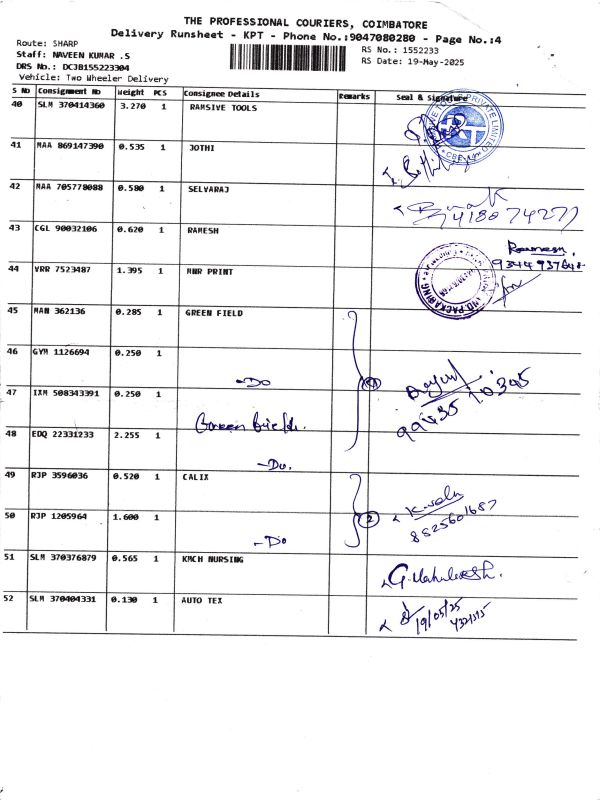 THE PROFESSIONAL COURIERS, COIMBATORE
Delivery Runsheet - KPT - Phone No.:9047080280 - Page No.:4
Route: SHARP
RS No.: 1552233
Staff: NAVEEN KUMAR .S
RS Date: 19-May-2025
DRS No.: DCJB155223304
Vehicle: Two Wheeler Delivery
S No Consignment No Weight PCS Consignee Details Remarks Seal & Signature
40 SLM 370414360 3.270 1 RAMSIVE TOOLS
41 MAA 869147390 0.535 1 JOTHI
42 MAA 705778088 0.580 1 SELVARAJ
7418074277
43 CGL 90032106 0.620 1 RAMESH
Ramesh.
9344937648
44 VRR 7523487 1.395 1 MNR PRINT
45 MAN 362136 0.285 1 GREEN FIELD
46 GYM 1126694 0.250 1
-Do
47 IXM 508343391 0.250 1
Green Field.
48 EDQ 22331233 2.255 1
-Do.
49 RJP 3596036 0.520 1 CALIX
8825601687
50 RJP 1205964 1.600 1
2
-Do
51 SLM 370376879 0.565 1 KMCH NURSING
52 SLM 370404331 0.130 1 AUTO TEX
19/05/25